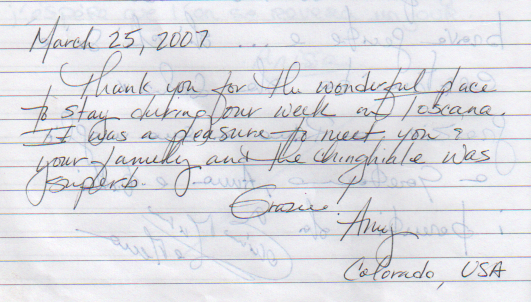 March 25, 2007
Thank you for the wonderful place
to stay during our week in Toscana.
It was a pleasure to meet you &
your family and the chinghiale was
superb.
Grazie
Amy
Colorado, USA